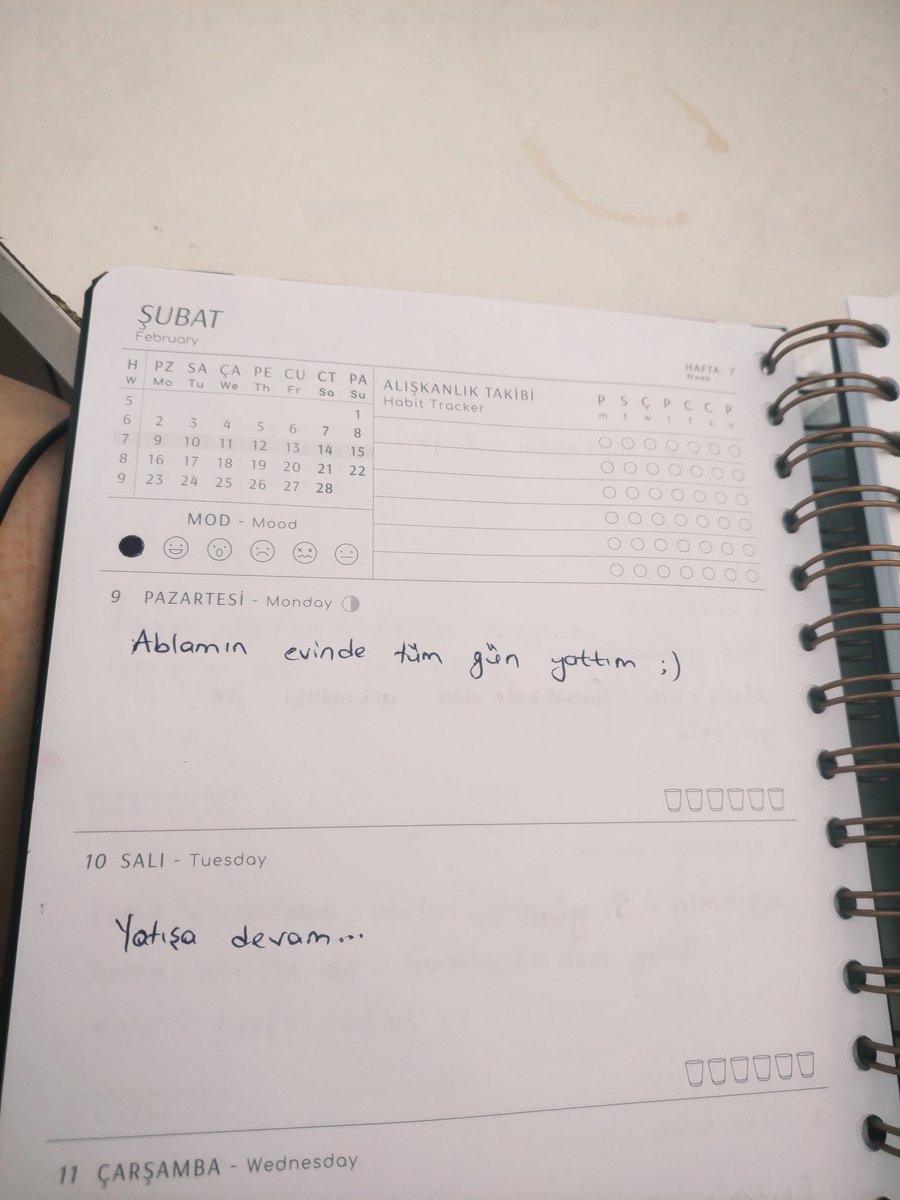 ŞUBAT
February
H PZ SA ÇA PE CU CT PA
W Mo Tu We Th Fr Sa Su
5 1
6 2 3 4 5 6 7 8
7 9 10 11 12 13 14 15
8 16 17 18 19 20 21 22
9 23 24 25 26 27 28
MOD - Mood
HAFTA: 7
Week
ALIŞKANLIK TAKİBİ
Habit Tracker
P S Ç P C C P
m t w t f s s
9 PAZARTESİ - Monday
Ablamın evinde tüm gün yattım ;)
10 SALI - Tuesday
Yatışa devam...
11 ÇARŞAMBA - Wednesday